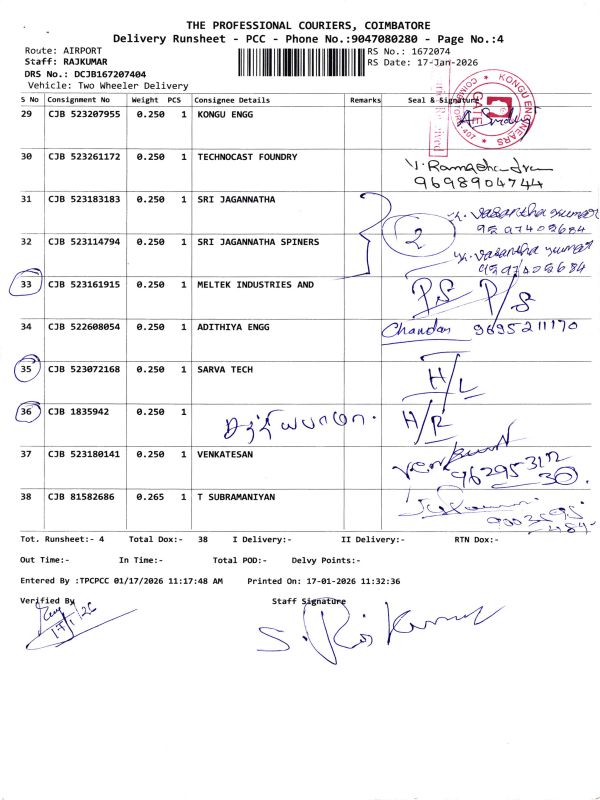 THE PROFESSIONAL COURIERS, COIMBATORE
Delivery Runsheet - PCC - Phone No.:9047080280 - Page No.:4
Route: AIRPORT
RS No.: 1672074
Staff: RAJKUMAR
RS Date: 17-Jan-2026
DRS No.: DCJB167207404
Vehicle: Two Wheeler Delivery
S No Consignment No Weight PCS Consignee Details Remarks Seal & Signature
29 CJB 523207955 0.250 1 KONGU ENGG
KONGU ENGINEERS
30 CJB 523261172 0.250 1 TECHNOCAST FOUNDRY
V. Ramachandran
9698904744
31 CJB 523183183 0.250 1 SRI JAGANNATHA
2
32 CJB 523114794 0.250 1 SRI JAGANNATHA SPINERS
33 CJB 523161915 0.250 1 MELTEK INDUSTRIES AND P.S P/S
34 CJB 522608054 0.250 1 ADITHIYA ENGG Chandan 9695211170
35 CJB 523072168 0.250 1 SARVA TECH H/L
36 CJB 1835942 0.250 1 H/R
37 CJB 523180141 0.250 1 VENKATESAN
96295312
30.
38 CJB 81582686 0.265 1 T SUBRAMANIYAN
Tot. Runsheet:- 4 Total Dox:- 38 I Delivery:- II Delivery:- RTN Dox:-
Out Time:- In Time:- Total POD:- Delvy Points:-
Entered By :TPCPCC 01/17/2026 11:17:48 AM Printed On: 17-01-2026 11:32:36
Verified By Staff Signature
17/1/26
S. Raj Kumar